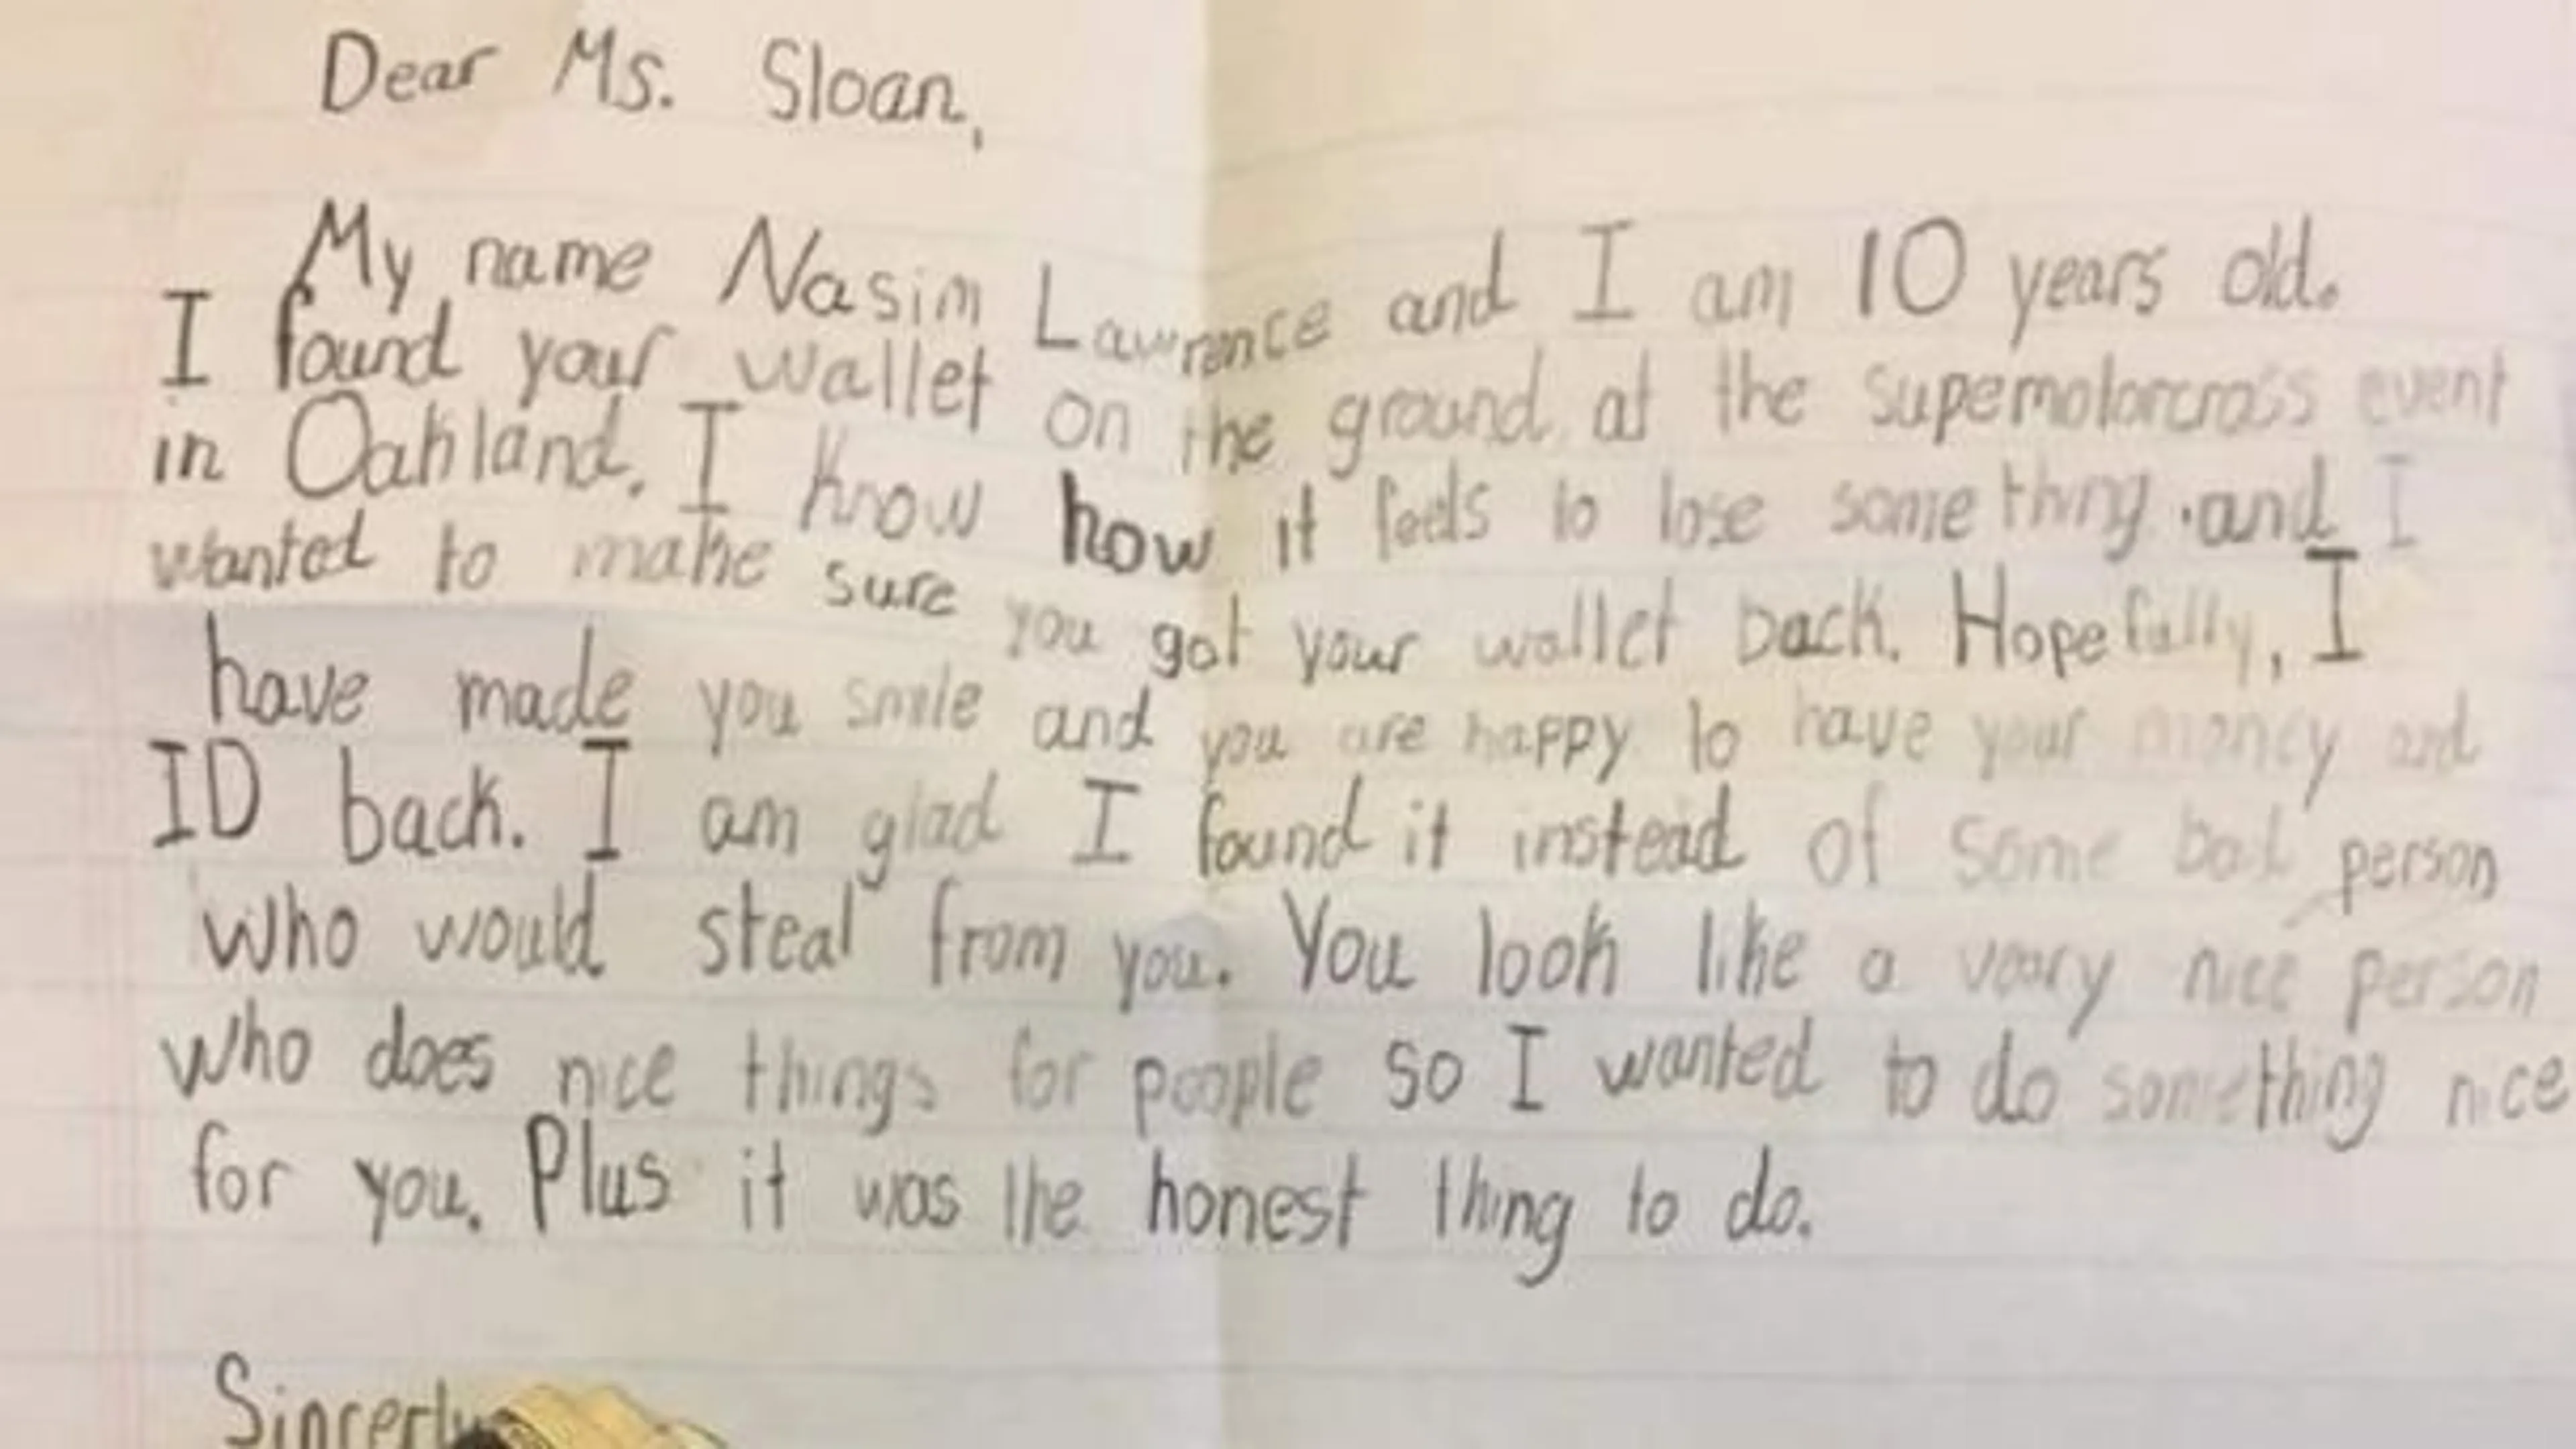 Dear Ms. Sloan,
My name Nasim Lawrence and I am 10 years old.
I found your wallet on the ground at the supemotorcross event
in Oakland. I know how it feels to lose something and I
wanted to make sure you got your wallet back. Hopefully, I
have made you smile and you are happy to have your money and
ID back. I am glad I found it instead of some bad person
who would steal from you. You look like a very nice person
who does nice things for people so I wanted to do something nice
for you. Plus it was the honest thing to do.
Sincerly